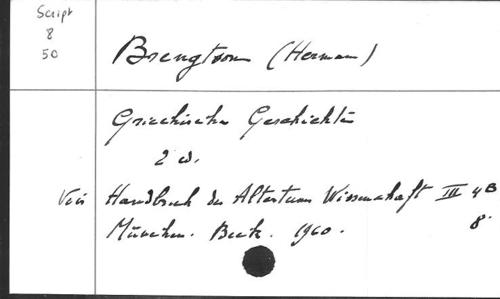 Script
8
50
Brengtson (Herman)
Griechische Geschichte
2 ed.
Voir Handbuch der Altertums Wissenschaft III 4 B
München. Beck. 1960.
8°